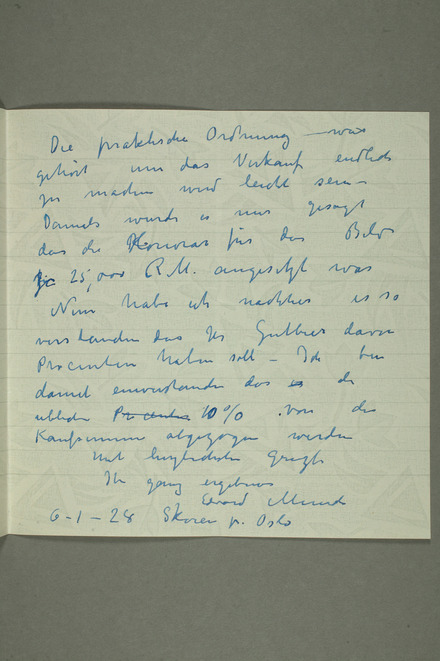 Die praktische Ordnung – was
gehört um das Verkauf endlich
zu machen wird leicht sein –
Damals wurde es mir gesagt
das die Honorar für das Bild
25,000 R.M. angesetzt war
Nun habe ich nachher es so
verstanden das Hr Guttbier davon
Procenten haben soll – Ich bin
damit einverstanden das es die
übliche Procenten 10% von der
Kaufsumme abgezogen werden
Mit herzlichsten Grüssen
Ihr ganz ergebener
Edvard Munch
6-1-28 Skøien pr. Oslo